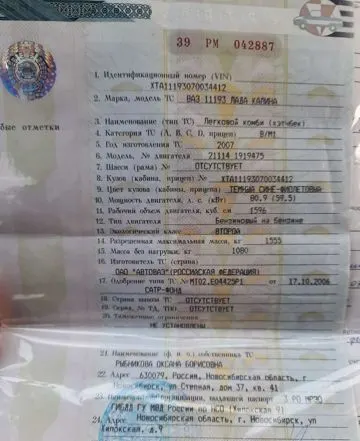 39 РМ 042887
1. Идентификационный номер (VIN)
XTA11193070034412
2. Марка, модель ТС ВАЗ 11193 ЛАДА КАЛИНА
3. Наименование (тип ТС) Легковой комби (хэтчбек)
4. Категория ТС (А, В, С, D, прицеп) В/М1
бые отметки
5. Год изготовления ТС 2007
6. Модель, № двигателя 21114 1919475
7. Шасси (рама) № ОТСУТСТВУЕТ
8. Кузов (кабина, прицеп) № XTA11193070034412
9. Цвет кузова (кабины, прицепа) ТЕМНЫЙ СИНЕ-ФИОЛЕТОВЫЙ
10. Мощность двигателя, л. с. (кВт) 80.9 (59.5)
11. Рабочий объем двигателя, куб. см 1596
12. Тип двигателя Бензиновый на бензине
13. Экологический класс ВТОРОЙ
14. Разрешенная максимальная масса, кг 1555
15. Масса без нагрузки, кг 1080
16. Изготовитель ТС (страна)
ОАО "АВТОВАЗ"(РОССИЙСКАЯ ФЕДЕРАЦИЯ)
17. Одобрение типа ТС № МТ02.Е04425Р1 от 17.10.2006
САТР-ФОНД
18. Страна вывоза ТС ОТСУТСТВУЕТ
19. Серия, № ТД, ТПО ОТСУТСТВУЕТ
20. Таможенные ограничения
НЕ УСТАНОВЛЕНЫ
21. Наименование (ф. и. о.) собственника ТС
РЫБНИКОВА ОКСАНА БОРИСОВНА
22. Адрес 630079, Россия, Новосибирская область, г
Новосибирск, ул Степная, дом 37, кв. 41
23. Наименование организации, выдавшей паспорт 3 РО МРЭО
ГИБДД ГУ МВД России по НСО (Хилокская 9)
24. Адрес Новосибирская область, г Новосибирск, ул
Хилокская, д.9